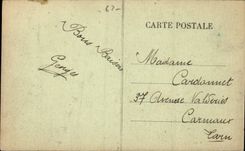 62-
CARTE POSTALE
Bons Baisers
Georges
Madame
Cardonnet
37 Avenue Valdériès
Carmaux
Tarn